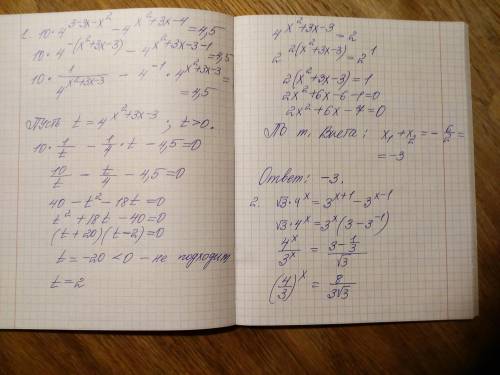 1. 10·4^(3-3x-x²) - 4^(x²+3x-4) = 4,5
10·4^(-(x²+3x-3)) - 4^(x²+3x-3-1) = 4,5
10·1/4^(x²+3x-3) - 4^(-1)·4^(x²+3x-3) =
= 4,5
Пусть t = 4^(x²+3x-3); t>0.
10·1/t - 1/4·t - 4,5=0
10/t - t/4 - 4,5=0
40 - t² - 18t = 0
t² + 18t - 40=0
(t+20)(t-2)=0
t = -20 < 0 - не подходит
t=2
4^(x²+3x-3) = 2
2^(2(x²+3x-3)) = 2^1
2(x²+3x-3) = 1
2x²+6x-6-1=0
2x²+6x-7=0
По т. Виета: x₁+x₂ = -6/2 =
= -3
Ответ: -3.
2. √3·4^x = 3^(x+1) - 3^(x-1)
√3·4^x = 3^x(3-3^(-1))
4^x/3^x = (3-1/3)/√3
(4/3)^x = 8/(3√3)